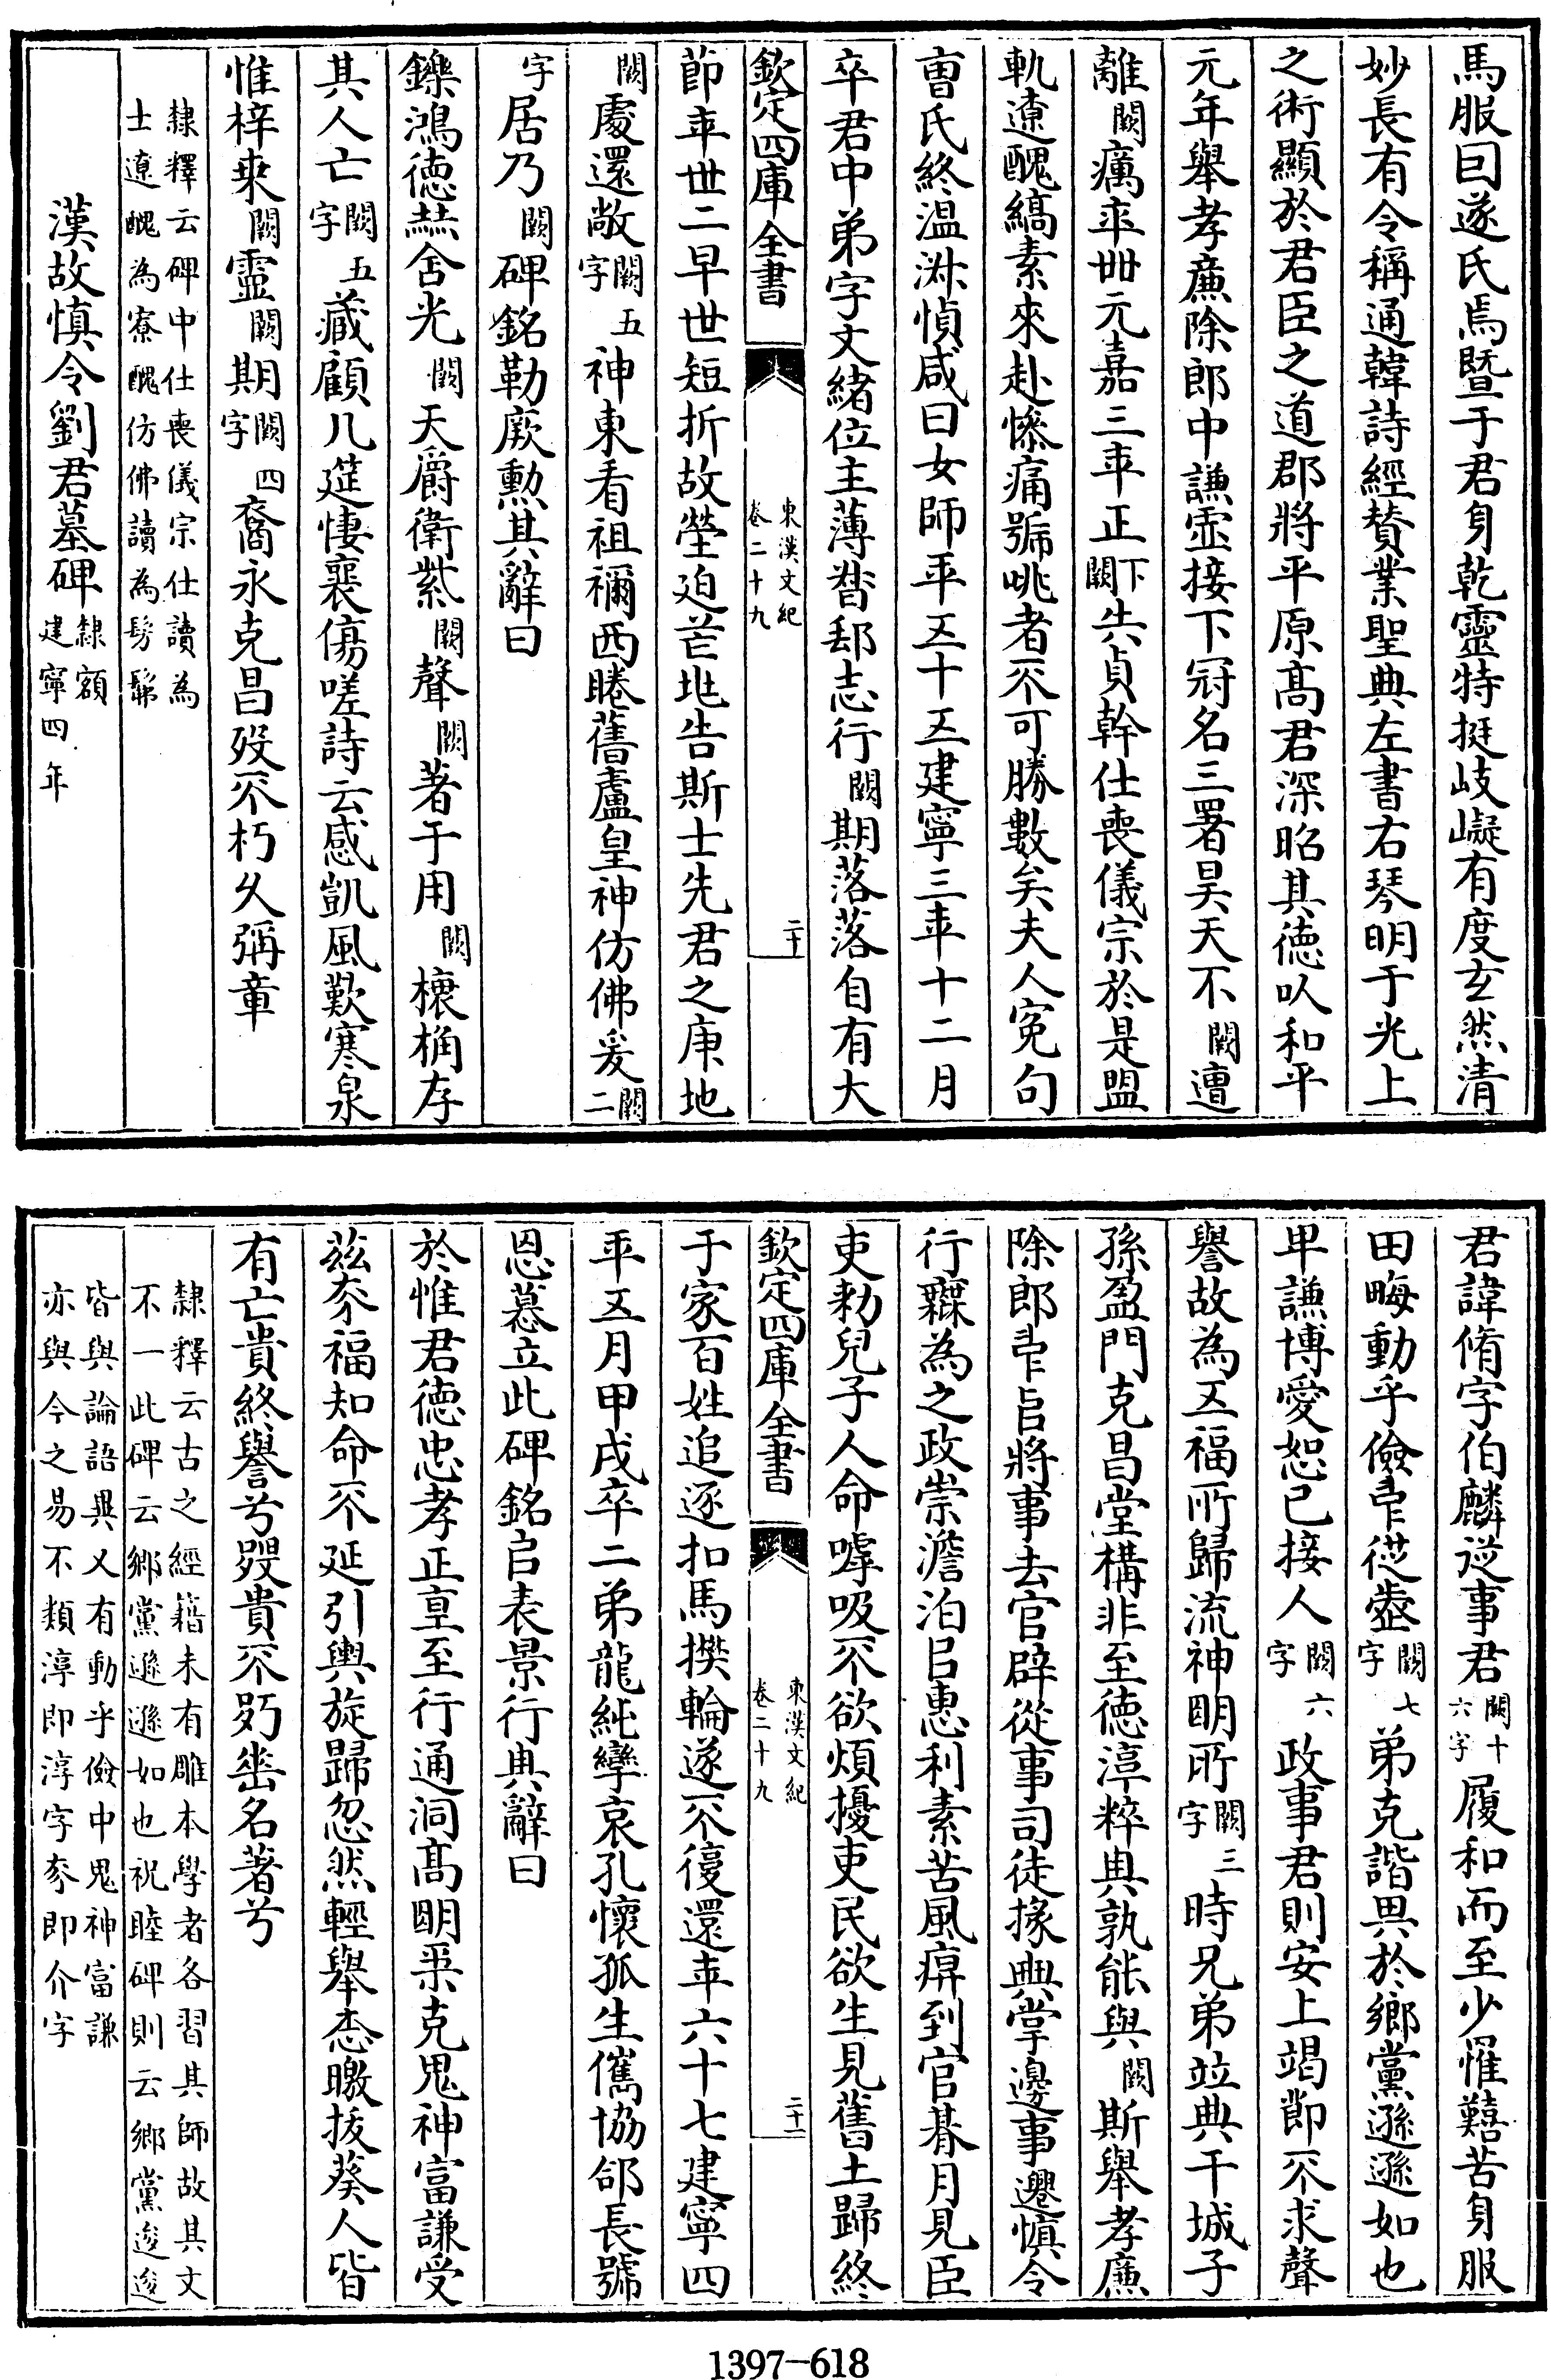 馬服囙遂氏焉曁于君身乾靈特挺岐嶷有度玄然清
妙長有令稱通韓詩經賛業聖典左書右琴明于光上
之術顯於君臣之道郡將平原髙君深昭其德㕥和平
元年舉孝亷除郎中謙虚接下冠名三署昊天不闕遭
離闕癘年丗元嘉三年正下闕失貞幹仕喪儀宗於是盟
軌遼醜縞素來赴慘痛號咷者不可勝數矣夫人寃句
曹氏終温淋愼咸曰女師年五十五建寧三年十二月
卒君中弟字文緒位主薄督郵志行闕期落落自有大
欽定四庫全書 東漢文紀 卷二十九 二十
節年丗二早世短折故塋迫芒地告斯士先君之庚地
闕處還敞闕五字神東看祖禰西睠舊廬皇神仿佛爰闕二
字居乃闕碑銘勒厥勲其辭曰
鑠鴻德兟舍光闕天爵衛紫闕聲闕著于用闕榱桷存
其人亡闕五字藏顧几筵悽襄傷嗟詩云感凱風歎寒泉
惟梓来闕靈闕期闕四字裔永克昌歿不朽久彌章
隸釋云碑中仕喪儀宗仕讀為
士遼醜為寮醜仿佛讀為髣髴
漢故慎令劉君墓碑隸額建寧四年
君諱脩字伯麟逆事君闕十六字履和而至少罹囏苦身服
田畮動乎儉中從虛闕七字弟克諧畀於鄉黨遜遜如也
卑謙博愛恕己接人闕六字政事君則安上竭節不求聲
譽故為五福所歸流神明所闕三字時兄弟竝典干城子
孫盈門克昌堂構非至德淳粹與孰能與闕斯舉孝亷
除郎中㠯將事去官辟從事司徒掾典掌邊事遷慎令
行䍧為之政崇澹泊㠯惠利素苦風痹到官朞月見臣
吏勑兒子人命嘑吸不欲煩擾吏民欲生見舊土歸終
欽定四庫全書 東漢文紀 卷二十九 二十一
于家百姓追逐扣馬㩣輪遂不復還年六十七建寧四
年五月甲戌卒二弟龍純孿哀孔懷孤生儁協郃長號
恩慕立此碑銘㠯表景行典辭曰
於惟君德忠孝正直至行通洞髙明柔克鬼神富謙受
茲夰福知命不延引輿旋歸忽然輕舉㤅曒拔葵人皆
有亡貴終譽兮歿貴不朽垂名著兮
隸釋云古之經籍未有雕本學者各習其師故其文
不一此碑云鄉黨遜遜如也祝睦碑則云鄉黨逡逡
皆與論語異乂有動乎儉中鬼神富謙
亦與今之易不類淳即淳字夰即介字
1397-618